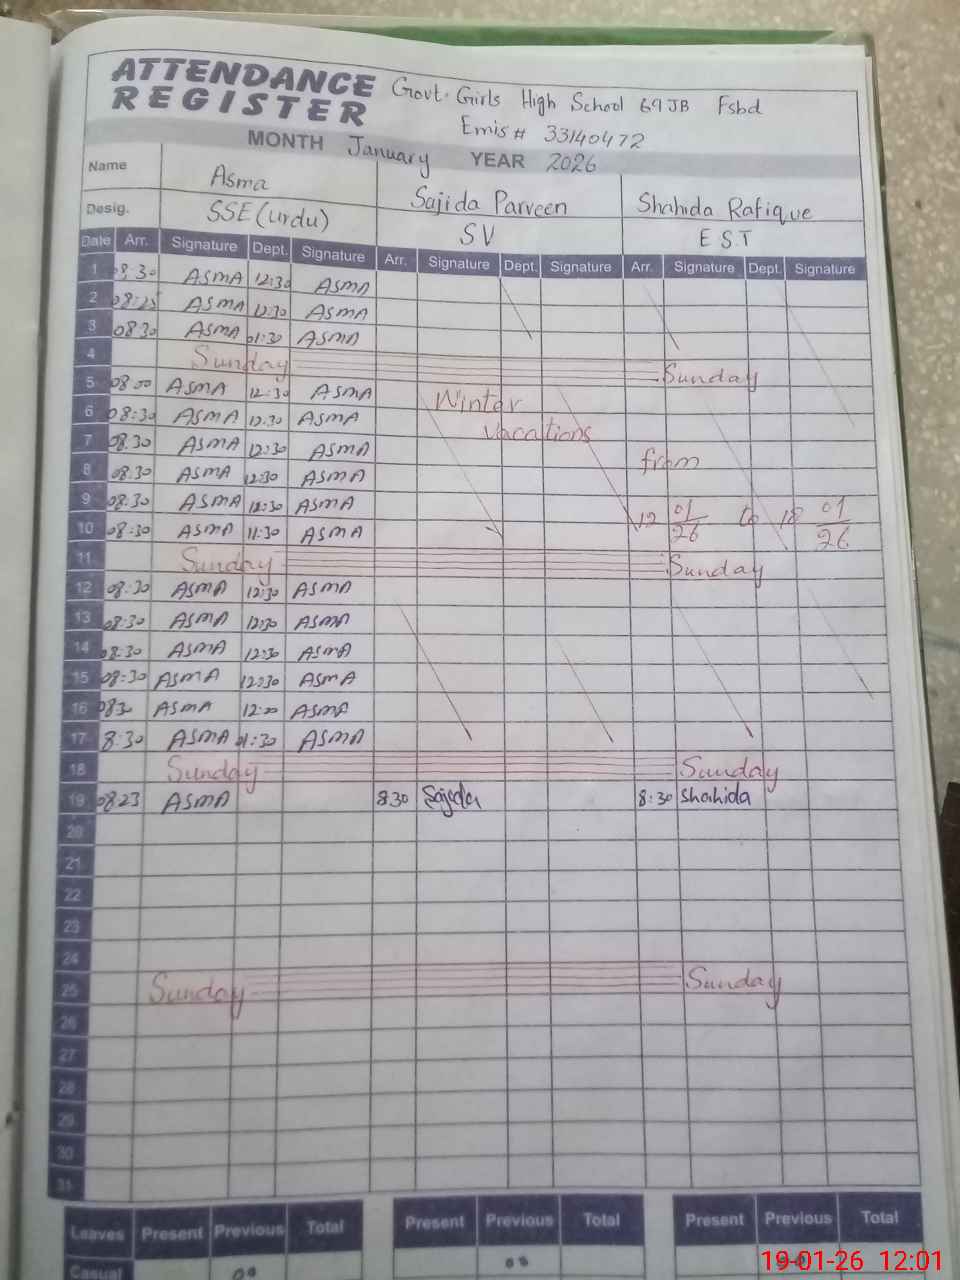 ATTENDANCE REGISTER Govt. Girls High School 69 JB Fsbd
Emis # 33140472
MONTH January YEAR 2026
Name Asma Sajida Parveen Shahida Rafique
Desig. SSE (urdu) SV E.S.T
Date Arr. Signature Dept. Signature Arr. Signature Dept. Signature Arr. Signature Dept. Signature
1 08:30 ASMA 12:30 ASMA
2 08:25 ASMA 12:30 ASMA
3 08:30 ASMA 01:30 ASMA
4 Sunday Sunday
5 08:00 ASMA 12:30 ASMA
6 08:30 ASMA 12:30 ASMA Winter
7 08:30 ASMA 12:30 ASMA vacations
8 08:30 ASMA 12:30 ASMA from
9 08:30 ASMA 12:30 ASMA
10 08:30 ASMA 11:30 ASMA 12 01/26 to 18 01/26
11 Sunday Sunday
12 08:30 ASMA 12:30 ASMA
13 08:30 ASMA 12:30 ASMA
14 08:30 ASMA 12:30 ASMA
15 08:30 ASMA 12:30 ASMA
16 0830 ASMA ASMA
17 8:30 ASMA 01:30 ASMA
18 Sunday Sunday
19 0823 ASMA 8:30 Sajeda 8:30 Shahida
20
21
22
23
24
25 Sunday Sunday
26
27
28
29
30
31
Leaves Present Previous Total Present Previous Total Present Previous Total
Casual 00 00
19-01-26 12:01